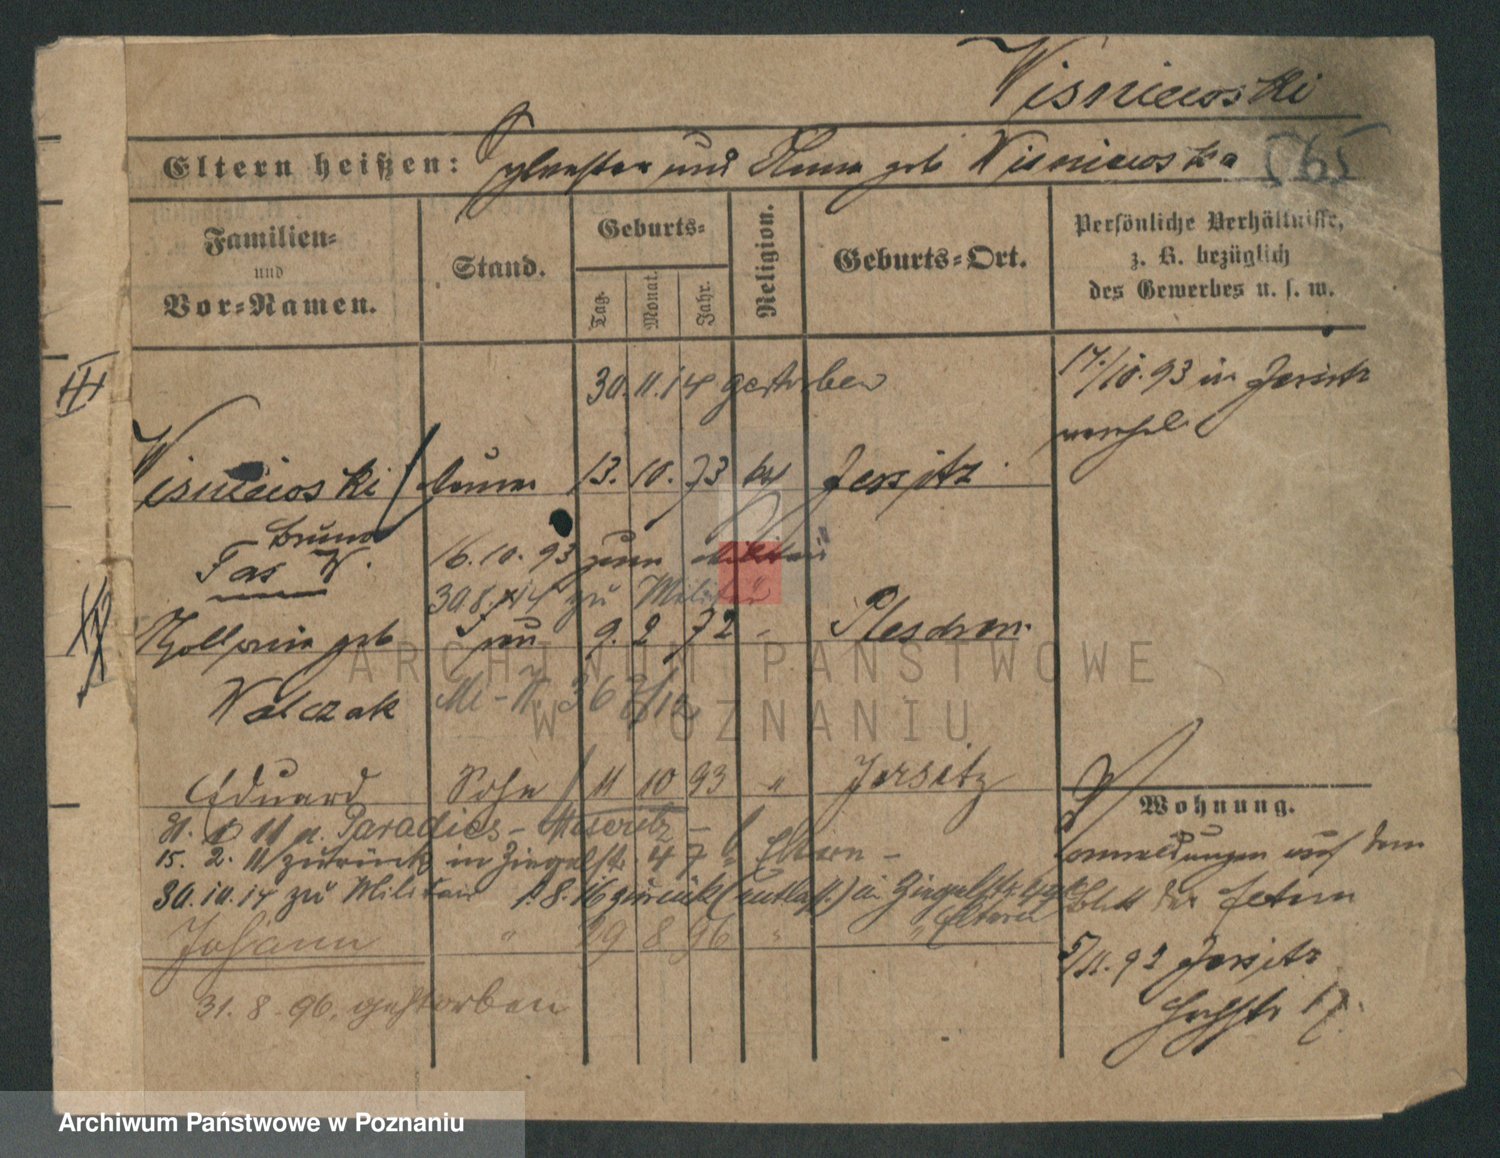 Wisniewski
Eltern heißen: Sylvester und Anna geb Wisniewska
Familien-
und
Vor-Namen.
Stand.
Geburts-
Tag.
Monat.
Jahr.
Religion.
Geburts-Ort.
Persönliche Verhältnisse,
z. B. bezüglich
des Gewerbes u. s. w.
III
30. 11. 14 gestorben
17./10. 93 in Jersitz
Wisniewski
13. 10. 73 kat Jersitz
Bruno
16. 10. 93 zum Militair
30 8. 14 zu Militär
geb Frau 9. 2. 72 " Pleschen
Walczak
ARCHIWUM PAŃSTWOWE
W POZNANIU
Eduard Sohn 11 10 93 " Jersitz
Wohnung.
11 n. Paradies - Meseritz -
15. 2. 11 zurück in Ziegelstr. 47 b Eltern -
30. 10. 14 zu Militair 1. 8. 16 zurück (entlass.) in Ziegelstr.
Eltern
auf dem
Blatt der
Johann " 29 8 96 "
5/11. 92 Jersitz
17
31. 8. 96. gestorben
Archiwum Państwowe w Poznaniu